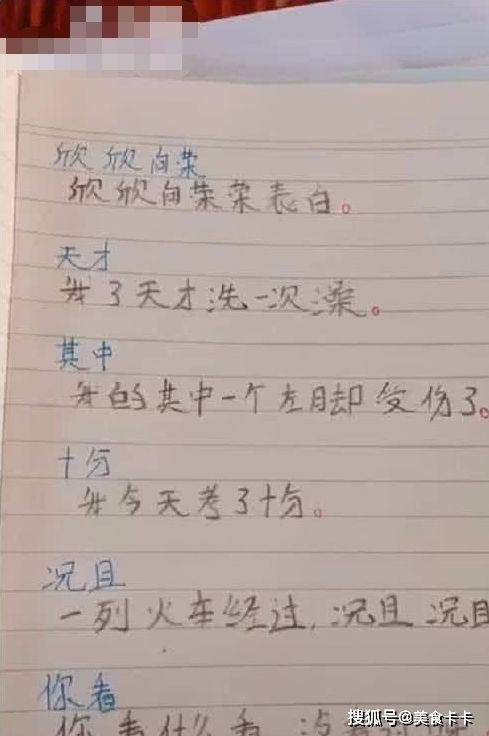 欣欣向荣
欣欣向荣荣表白。
天才
我3天才洗一次澡。
其中
我的其中一个左脚却受伤了。
十分
我今天考了十分。
况且
一列火车经过,况且况且
你看
你看什么看,没看过
搜狐号@美食卡卡